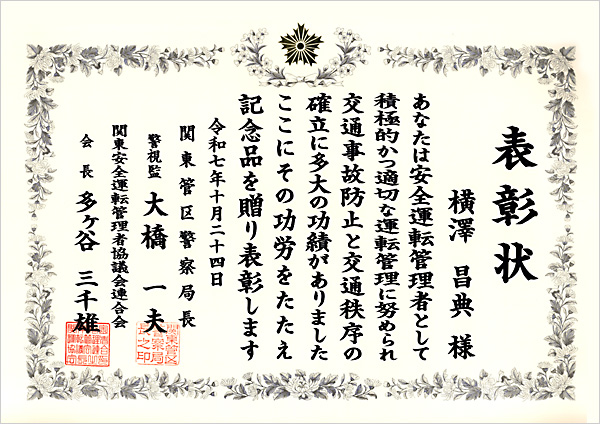 表彰状
横澤昌典様
あなたは安全運転管理者として
積極的かつ適切な運転管理に努められ
交通事故防止と交通秩序の
確立に多大の功績がありました
ここにその功労をたたえ
記念品を贈り表彰します
令和七年十月二十四日
関東管区警察局長
警視監 大橋一夫
関東安全運転管理者協議会連合会
会長 多ヶ谷三千雄